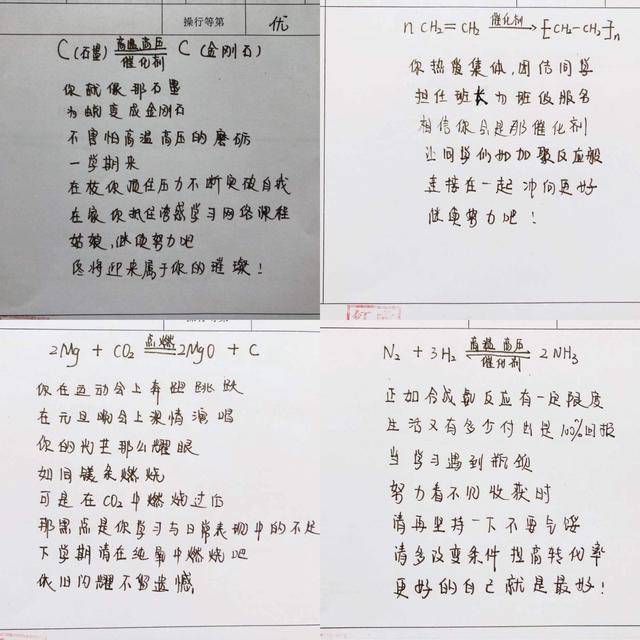 操行等第 优
C(石墨) 高温高压 催化剂 C(金刚石)
你就像那石墨
为蜕变成金刚石
不害怕高温高压的磨砺
一学期来
在校你顶住压力不断突破自我
在家你抵住诱惑学习网络课程
姑娘,继续努力吧
终将迎来属于你的璀璨!
nCH2=CH2 催化剂 [CH2-CH2]n
你热爱集体,团结同学
担任班长为班级服务
相信你会是那催化剂
让同学们如加聚反应般
连接在一起冲向更好
继续努力吧!
2Mg + CO2 点燃 2MgO + C
你在运动会上奔跑跳跃
在元旦晚会上深情演唱
你的光芒那么耀眼
如同镁条燃烧
可是在CO2中燃烧过后
那黑点是你学习与日常表现中的不足
下学期请在纯氧中燃烧吧
依旧闪耀不留遗憾
N2 + 3H2 高温高压 催化剂 2NH3
正如合成氨反应有一定限度
生活又有多少付出是100%回报
当学习遇到瓶颈
努力看不见收获时
请再坚持一下不要气馁
请多改变条件提高转化率
更好的自己就是最好!